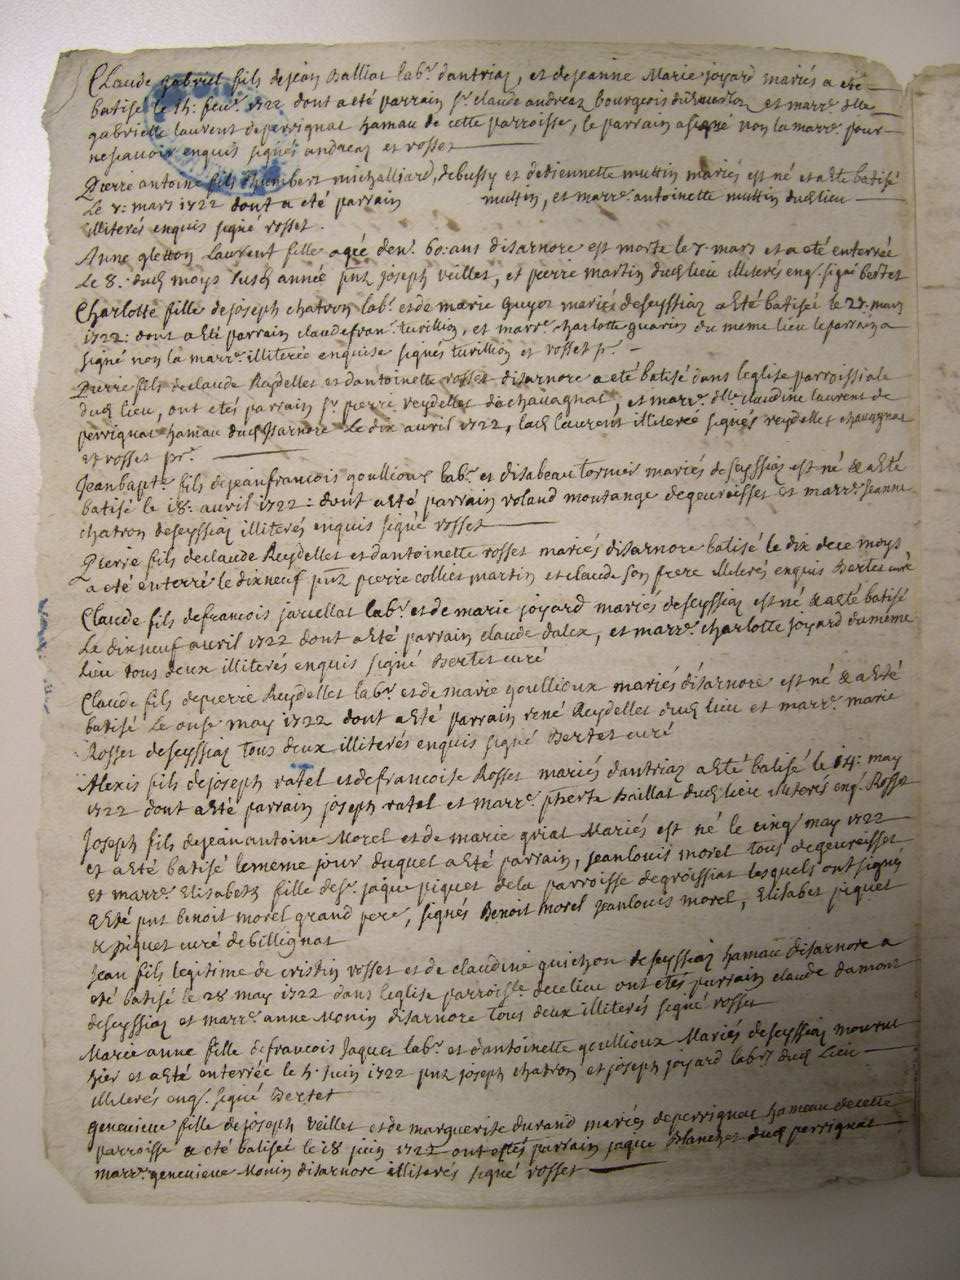 Claude gabriel fils dejean Balliat lab.r dantriaz, et dejeanne Marie joyard mariés a eté
batisé le 14: feu.r 1722 dont a eté parrain s.r claude andreaz bourgeois et marr.e d.lle
gabrielle laurent deperrignat hamau de cette parroisse, le parrain a signé non la marr.e pour
ne scavoir enquis signés andreaz et rosset
Pierre antoine fils dhumbert michalliard, debussy et detiennette muttin mariés est né et a eté batisé
Le 7: mars 1722 dont a eté parrain muttin, et marr.e antoinette muttin dud lieu
illiterés enquis signé rosset.
Anne gletton Laurent fille agée den.n 60: ans disarnore est morte le 7 mars et a eté enterrée
Le 8: dud moys susd année pnt joseph veillet, et pierre martin dud lieu illiterés enq. signé bertet
Charlotte fille de joseph chatron lab.r et de marie guyot mariés deseyssiaz a eté batisée le 27: mars
1722: dont a eté parrain claudefran. turillion, et marr.e charlotte guarin du meme lieu le parrain a
signé non la marr.e illiterée enquise signés turillion et rosset p.r
Pierre fils declaude Reydellet et dantoinette rosset disarnore a eté batisé dans leglise parroissiale
dud lieu, ont etés parrain s.r pierre reydellet de chavagnat, et marr.e d.lle claudine laurent de
perrignat hamau dud Isarnore Le dix avril 1722, lad laurent illiterée signés reydellet chavagnat
et rosset p.r
Jeanbapt.e fils dejeanfrancois goullioux lab.r et disabeau tornier mariés deseyssiaz est né & a eté
batisé le 18: avril 1722: dont a eté parrain roland montange degeureisset et marr.e jeanne
chatron deseyssiaz illiterés enquis signé rosset
Pierre fils declaude Reydellet et dantoinette rosset mariés disarnore batisé le dix dece moys
a eté enterré le dixneuf pnt pierre colliet martin et claude son frere illiterés enquis Bertet curé
Claude fils defrancois jarnellat lab.r et de marie joyard mariés deseyssiaz est né & a eté batisé
Le dixneuf avril 1722 dont a eté parrain claude dalex, et marr.e charlotte joyard dumême
Lieu tous deux illiterés enquis signé Bertet curé
Claude fils depierre Reydellet lab.r et de marie goullioux mariés disarnore est né & a eté
batisé Le onse may 1722 dont a eté parrain rené Reydellet dud lieu et marr.e marie
Rosset deseyssiaz tous deux illiterés enquis signé Bertet curé
Alexis fils de joseph ratel et defrancoise Rosset mariés dantriaz a eté batisé le 14: may
1722 dont a eté parrain joseph ratel et marr.e Baillat dud lieu illiterés enq. Rosset
Joseph fils dejean antoine Morel et de marie griat Mariés est né le cinq may 1722
et a eté batisé lememe jour duquel a eté parrain, jeanlouis morel tous degeureisset
et marr.e Elisabeth fille de s.r jaque piquet dela parroisse degroissiat lesquels ont signés
a eté pnt benoit morel grand pere, signés Benoit morel jeanlouis morel, Elisabet piquet
& piquet curé debillignat
Jean fils legitime de cristin rosset et de claudine guichon deseyssiaz hamau disarnore a
eté batisé le 28 may 1722 dans leglise parroiss.le decelieu ont etés parrain claude damont
deseyssiaz et marr.e anne Monin disarnore tous deux illiterés signé rosset
Marie anne fille defrancois Jaquet lab.r et dantoinette goullioux Mariés deseyssiaz mourut
hier et a eté enterrée le 4: juin 1722 pnt joseph chatron et joseph joyard lab.rs dud Lieu
illiterés enq. signé Bertet
genevieve fille de joseph veillet et de marguerite durand mariés deperrignat hameau decette
parroisse a eté batisée le 18 juin 1722 ont estés parrain jaque Blanchet dud perrignat
marr.e genevieve Monin disarnore illiterés signé rosset